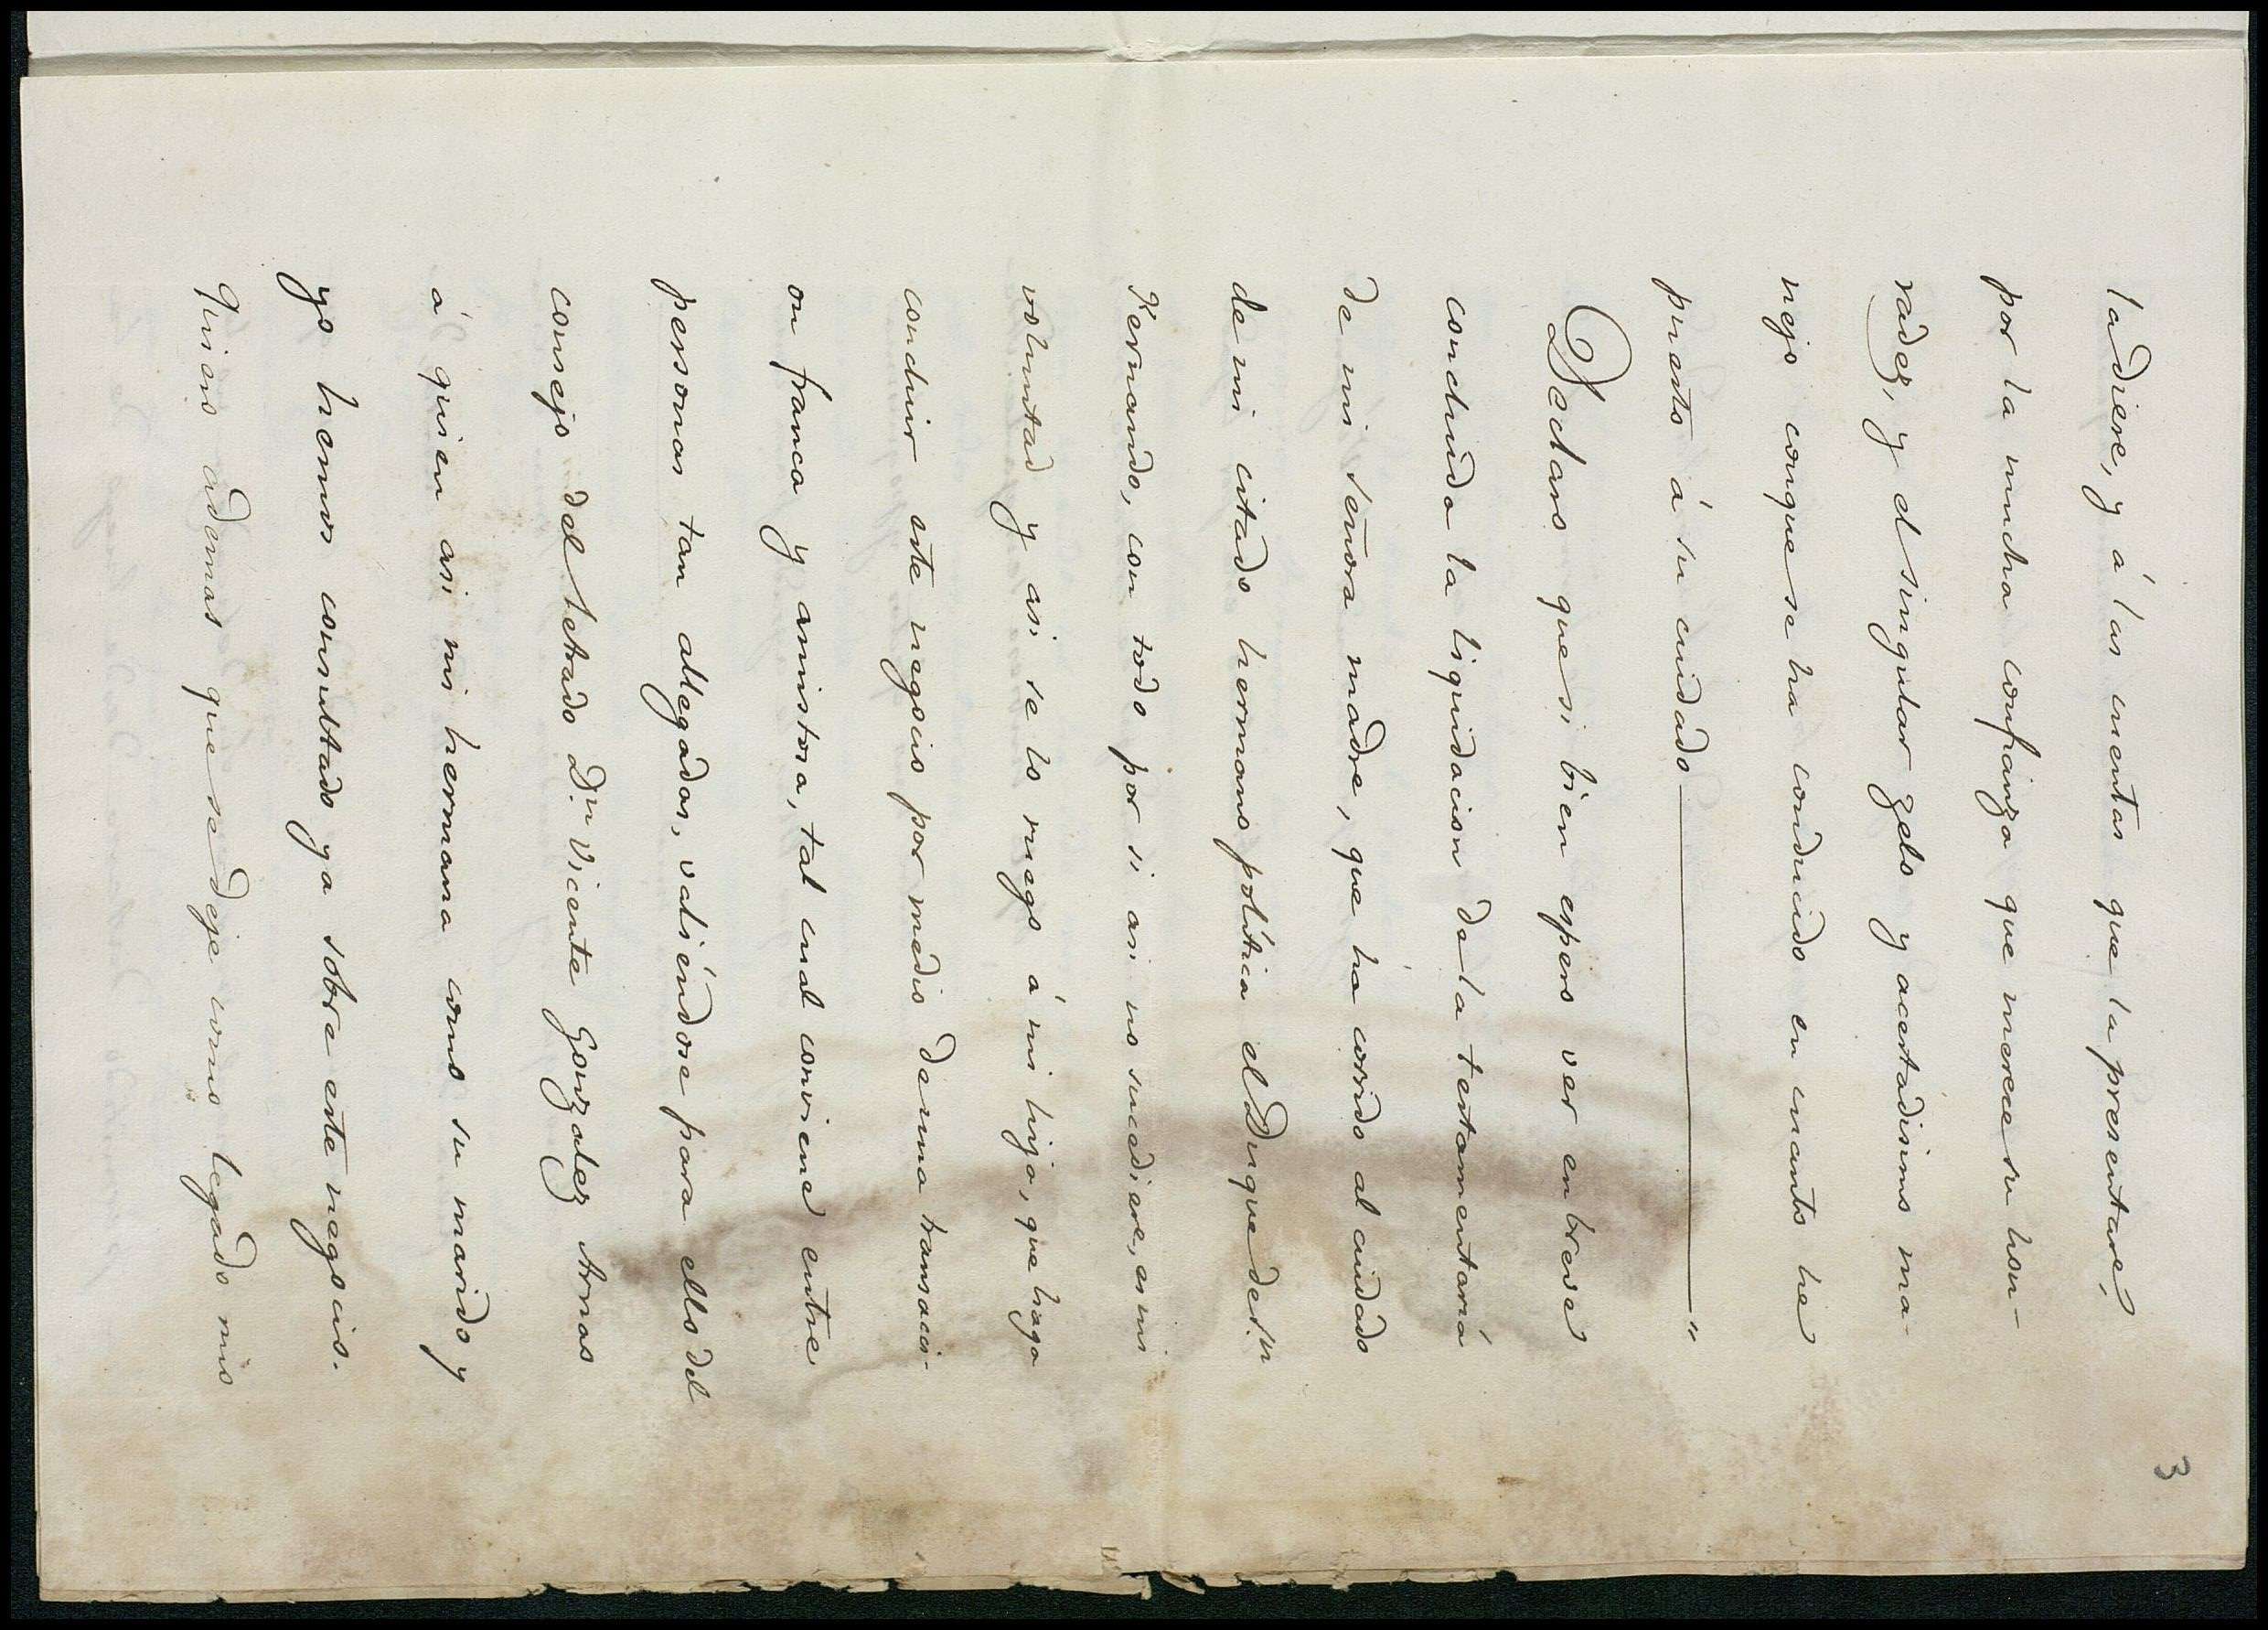 3
ladiere, y á las cuentas que la presentare,
por la mucha confianza que merece su hon-
radez, y el singular zelo y acertadisimo ma-
nejo conque se ha conducido en cuanto he
puesto á su cuidado "
Declaro que si bien espero ver en breve
concluida la liquidacion de la testamentaría
de mi señora madre, que ha corrido al cuidado
de mi citado hermano político el Duque de Sn
Fernando, con todo por si asi no sucediere, es mi
voluntad y asi se lo ruego á mi hija, que haga
concluir este negocio por medio de una transacci-
on franca y amistosa, tal cual conviene entre
personas tan allegadas, valiéndose para ello del
consejo del letrado Dn. Vicente Gonzalez Arnao
á quien asi mi hermana como su marido y
yo hemos consultado ya sobre este negocio.
Quiero ademas que se deje como legado mio